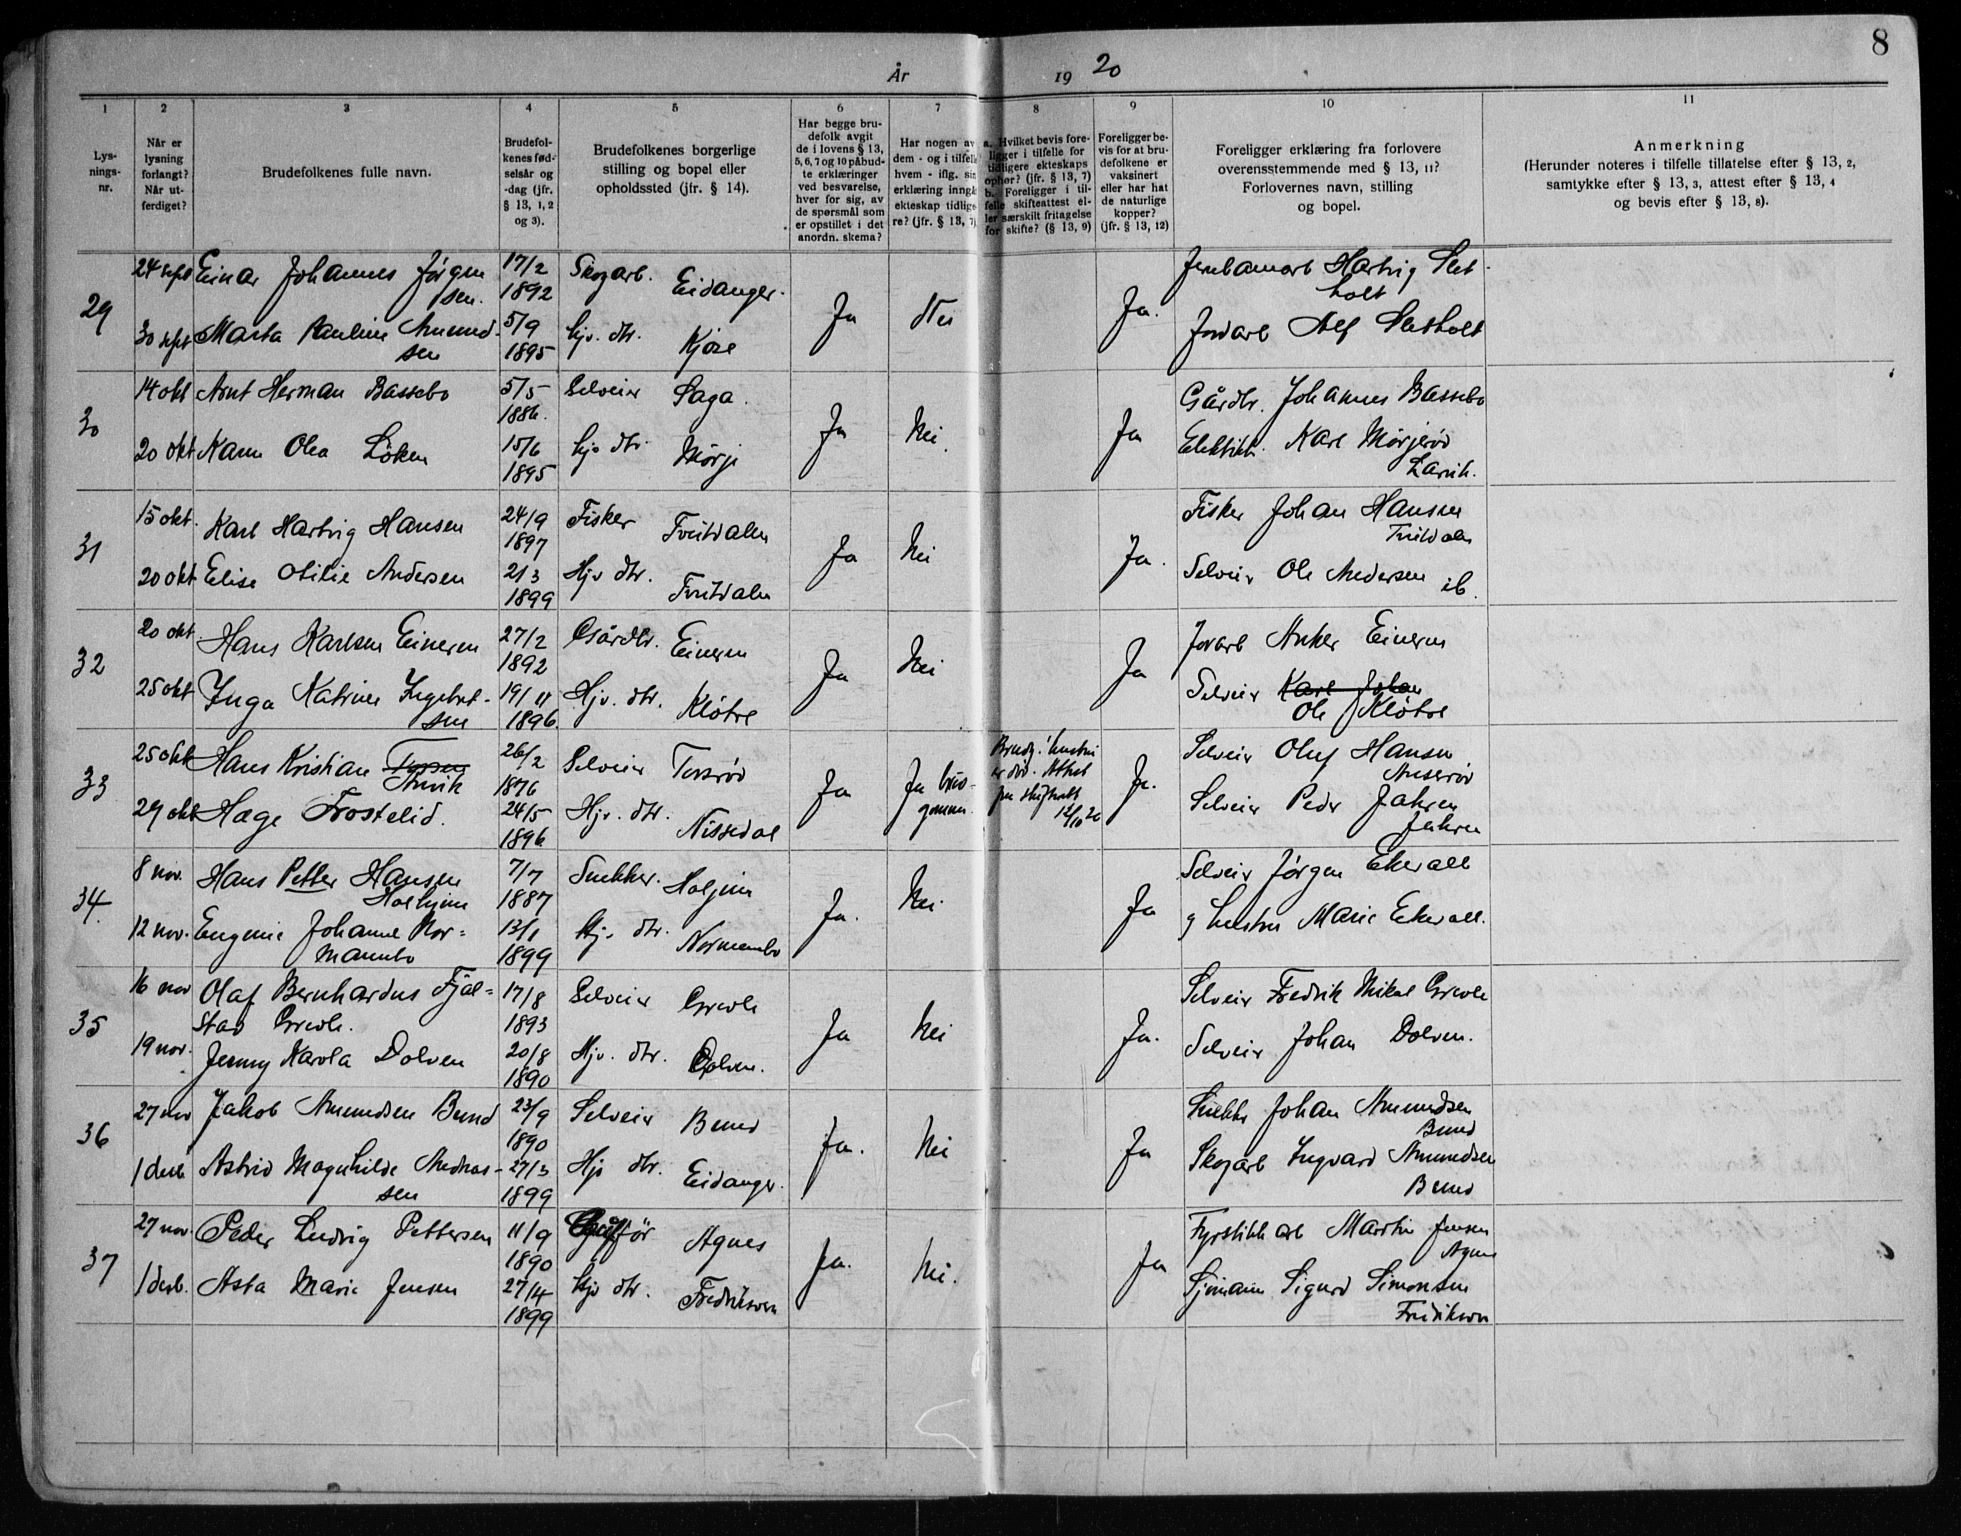 8
År 1920
1
2
3
4
5
6
7
8
9
10
11
Lys-
nings-
nr.
Når er
lysning
forlangt?
Når ut-
ferdiget?
Brudefolkenes fulle navn.
Brudefol-
kenes fød-
selsår og
-dag (jfr.
§ 13, 1, 2
og 3).
Brudefolkenes borgerlige
stilling og bopel eller
opholdssted (jfr. § 14).
Har begge bru-
defolk avgit
de i lovens § 13,
5, 6, 7 og 10 påbud-
te erklæringer
ved besvarelse,
hver for sig, av
de spørsmål som
er opstillet i det
anordn. skema?
Har nogen av
dem - og i tilfelle
hvem - iflg. sin
erklæring inngåt
ekteskap tidlige-
re? (jfr. § 13, 7)
a. Hvilket bevis fore-
ligger i tilfelle for
tidligere ekteskaps
ophør? (jfr. § 13, 7)
b. Foreligger i til-
felle skifteattest el-
ler særskilt fritagelse
for skifte? (§ 13, 9)
Foreligger be-
vis for at bru-
defolkene er
vaksinert
eller har hat
de naturlige
kopper?
(jfr. § 13, 12)
Foreligger erklæring fra forlovere
overensstemmende med § 13, 11?
Forlovernes navn, stilling
og bopel.
Anmerkning
(Herunder noteres i tilfelle tillatelse efter § 13, 2,
samtykke efter § 13, 3, attest efter § 13, 4
og bevis efter § 13, 8).
29
24 sept Einar Johannes Jørgen
sen.
17/2
1892
Skogarb. Eidanger.
30 sept Marta Pauline Amund-
sen
5/9
1895
Hjv. dtr. Kjose
Ja
Nei
Ja.
Hartvig Slet
holt
Jordarb Alf Sletholt
30
14 okt Arnt Herman Bassebo
5/5
1886.
Selveier Saga.
20 okt Olea Løken
15/6
1895
Hjv dtr. Mørje
Ja
Nei
Ja
Gårdbr. Johannes Bassebo
Karl Mørjerød
Larvik.
31
15 okt. Karl Hartvig Hansen
24/9
1897
Fisker Tveitdalen
20 okt Elise Otilie Andersen
21/3
1899
Hjv dtr. Tveitdalen
Ja
Nei
Ja.
Fisker Johan Hansen
Tveitdalen
Selveier Ole Andersen ib.
32
20 okt. Hans Karlsen Eineren
27/2
1892
Gårdbr. Eineren
25 okt Inga Katrine Ingebret-
sen
19/11
1896.
Hjv. dtr. Kløtre
Ja
Nei
Ja
Jorarb Anker Eineren
Selveier Karl Johan
Ole Kløtre
33
25 okt Hans Kristian
26/2
1876
Selveier Torsrød
29 okt Hæge Frostelid.
24/5
1896
Hjv. dtr. Nissedal
Ja
Ja brud-
gommen
Brudg. hustru
er død. Attest
fra skifterett
12/10 20
Ja.
Selveier Oluf Hansen
Anserød
Selveier Peder Jahren
Jahren
34.
8 nov. Hans Petter Hansen
Holhjem
7/7
1887
Snekker. Holjem
12 nov. Eugenie Johanne Nor-
mannbo
13/1
1899
Hjv. dtr. Normannbo
Ja.
Nei.
Ja
Selveier Jørgen Ekevall
og hustru Marie Ekevall.
35
16 nov Olaf Bernhardus Fjæl-
stad
17/8
1893
Selveier
19 nov. Jenny Karola Dolven
20/8
1890
Hjv. dtr. Dolven.
Ja
Nei
Ja.
Selveier Fredrik Mikal
Selveier Johan Dolven.
36
27 nov Jakob Amundsen Bund
23/9
1890
Selveier Bund
1 desb Astrid Magnhilde Andreas-
sen
27/3
1899
Hjv dtr. Eidanger.
Ja.
Nei
Ja
Snekker Johan Amundsen
Bund
Skogarb Ingvard Amundsen
Bund
37
27 nov. Peder Ludvig Pettersen
11/9
1890
Agnes
1 desb. Asta Marie Jensen
27/4
1899
Hjv dtr. Fredriksvern
Ja.
Nei.
Ja
Fyrstikkarb Martin Jensen
Agnes
Sjømann Sigurd Simonsen
Fredriksvern